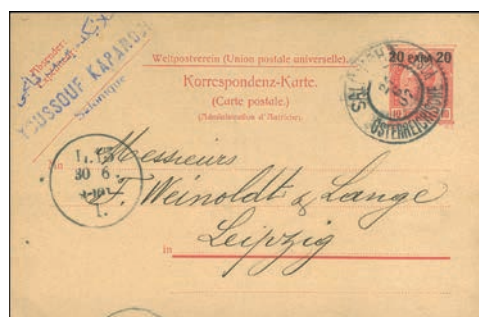 Absender:
Expéditeur:
YOUSSOUF KAPANDJI
Salonique
Weltpostverein (Union postale universelle).
Korrespondenz-Karte.
(Carte postale.)
(Administration d'Autriche)
20 PARA 20
10 10
ÖSTERREICHISCHE
An
Messieurs
F. Weinoldt & Lange
in
Leipzig
30 6.